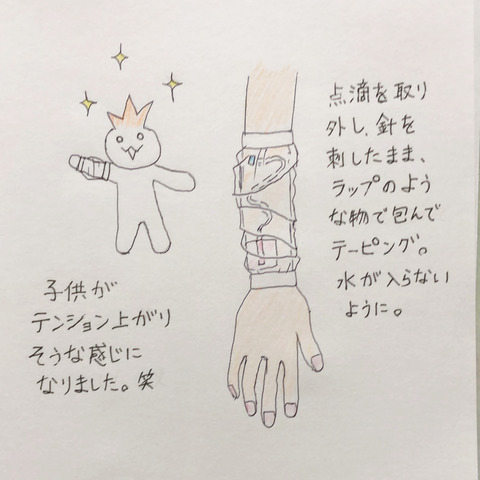 点滴を取り
外し、針を
刺したまま、
ラップのよう
な物で包んで
テーピング。
水が入らない
ように。
子供が
テンション上がり
そうな感じに
なりました。笑